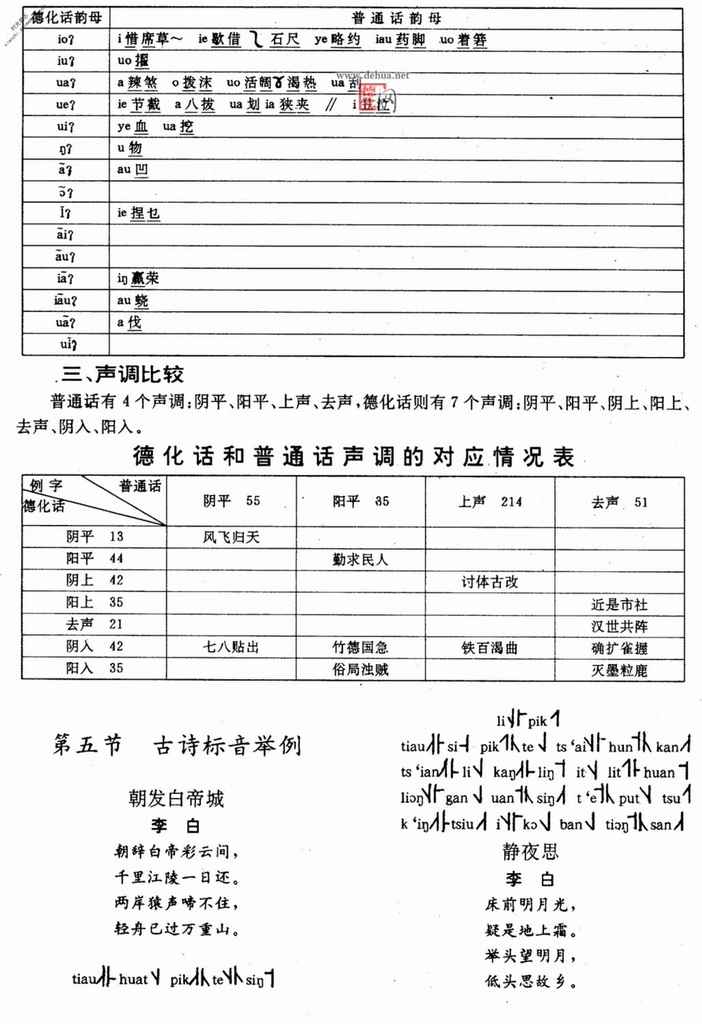 德化话韵母 普通话韵母
ioʔ i 惜席草～ ie 歇借 ʅ 石尺 ye 略约 iau 药脚 uo 着箬
iuʔ uo 擢
uaʔ a 辣煞 o 拨沫 uo 活 ɤ 渴热 ua 刮
ueʔ ie 节截 a 八拔 ua 划 ia 狭夹 ∥ i
uiʔ ye 血 ua 挖
ŋʔ u 物
ãʔ au 凹
ɔ̃ʔ
ĩʔ ie 捏乜
ãiʔ
ãuʔ
iãʔ iŋ 赢荣
iãuʔ au 蛲
uãʔ a 伐
uĩʔ
www.dehua.net
三、声调比较
普通话有4个声调:阴平、阳平、上声、去声,德化话则有7个声调:阴平、阳平、阴上、阳上、
去声、阴入、阳入。
德化话和普通话声调的对应情况表
例字 普通话 德化话 阴平 55 阳平 35 上声 214 去声 51
阴平 13 风飞归天
阳平 44 勤求民人
阴上 42 讨体古改
阳上 35 近是市社
去声 21 汉世共阵
阴入 42 七八贴出 竹德国急 铁百渴曲 确扩雀握
阳入 35 俗局浊贼 灭墨粒鹿
第五节 古诗标音举例
朝发白帝城
李 白
朝辞白帝彩云间,
千里江陵一日还。
两岸猿声啼不住,
轻舟已过万重山。
tiau huat pik te siŋ
li pik
tiau si pik te ts‘ai hun kan
ts‘ian li kaŋ liŋ it lit huan
liɔŋ gan uan siŋ t‘e put tsu
k‘iŋ tsiu i kɔ ban tiɔŋ san
静夜思
李 白
床前明月光,
疑是地上霜。
举头望明月,
低头思故乡。